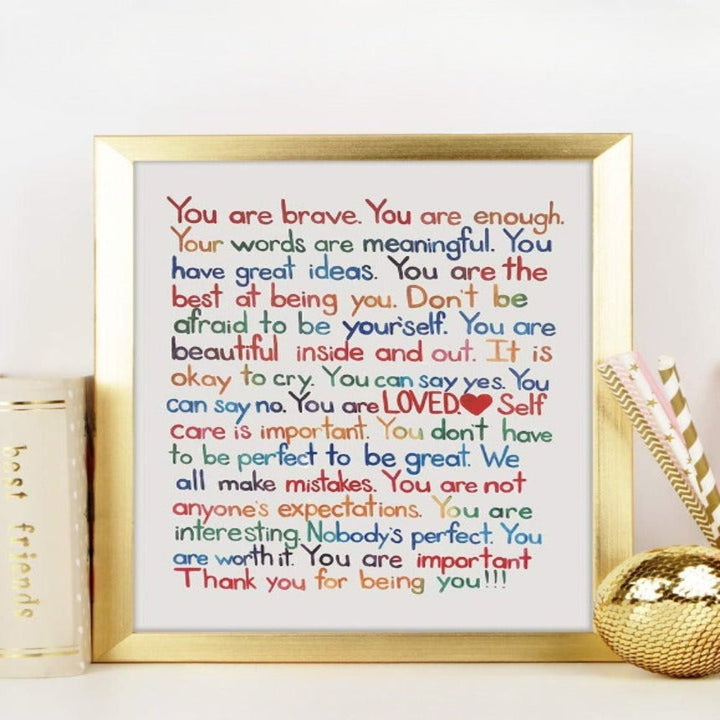 You are brave. You are enough.
Your words are meaningful. You
have great ideas. You are the
best at being you. Don't be
afraid to be your'self. You are
beautiful inside and out. It is
okay to cry. You can say yes. You
can say no. You are LOVED.❤ Self
care is important. You don't have
to be perfect to be great. We
all make mistakes. You are not
anyone's expectations. You are
interesting. Nobody's perfect. You
are worth it. You are important
Thank you for being you!!!
best friends